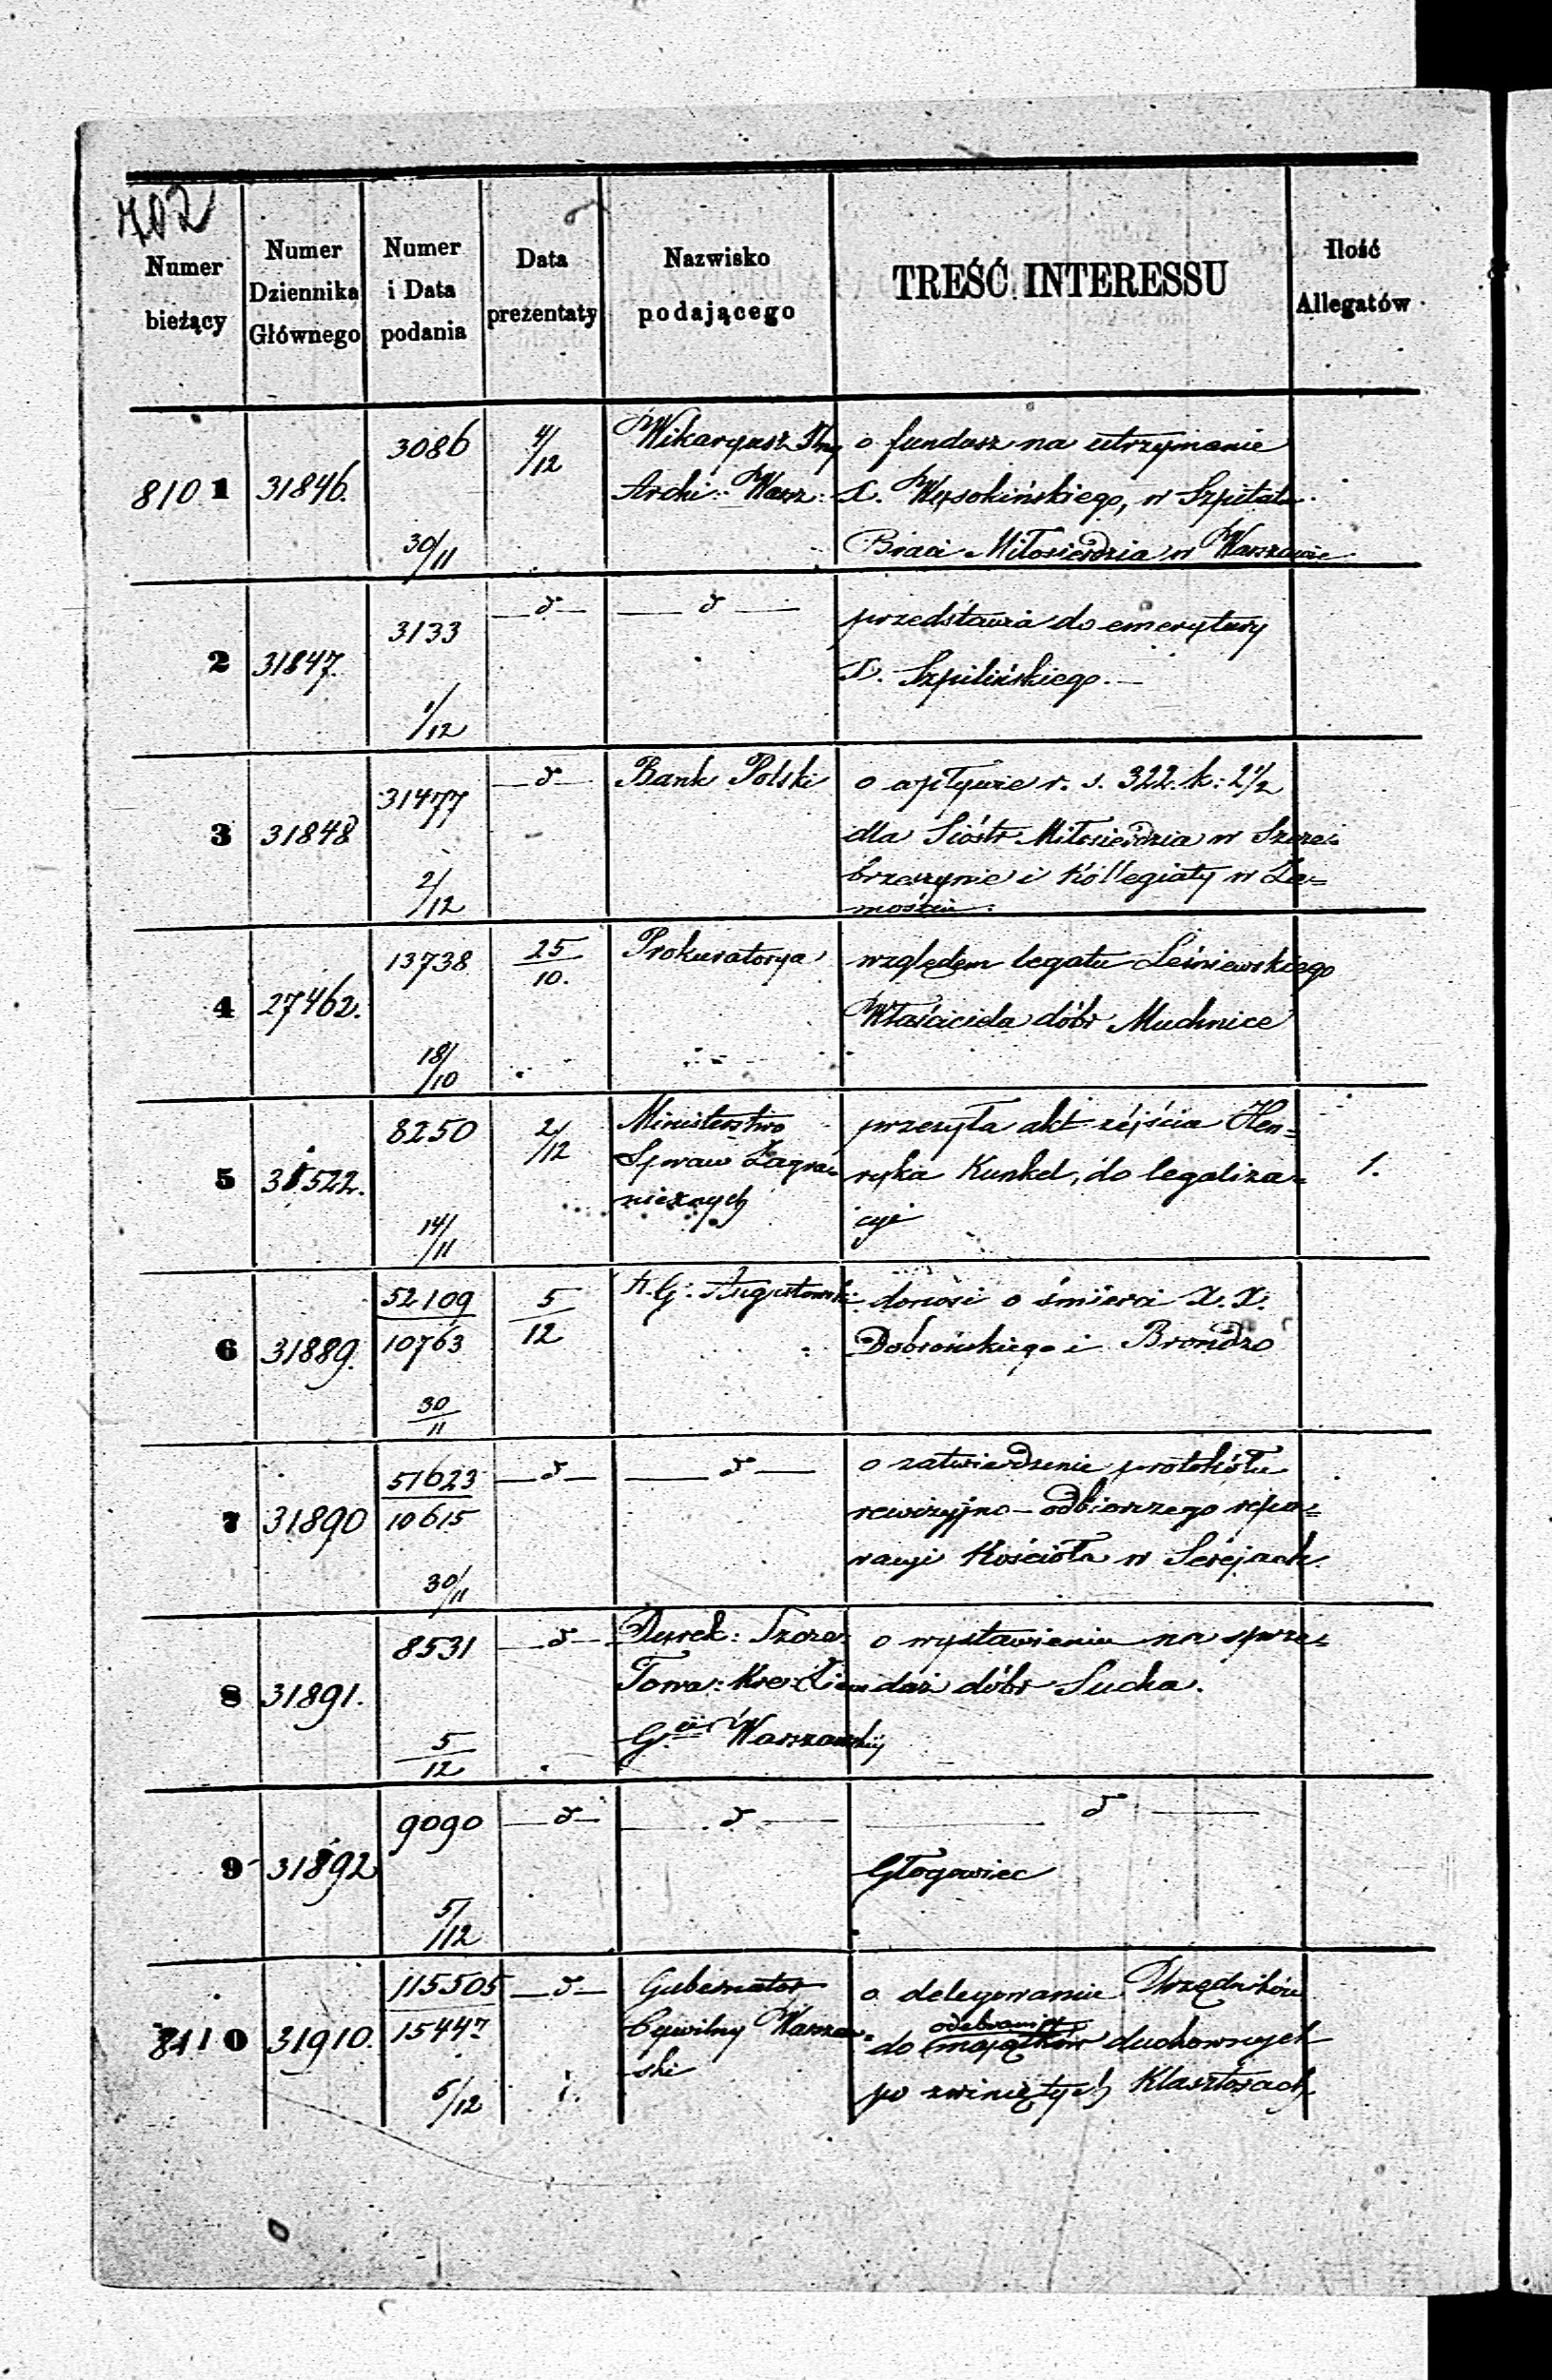 702
Numer bieżący
Numer Dziennika Głównego
Numer i Data podania
Data prezentaty
Nazwisko podającego
TREŚĆ INTERESSU
Ilość Allegatów
8101 31846. 3086 30/11 4/12
Wikaryusz Jlny
Archi: Warsz:
o fundusz na utrzymanie
X. Wysokińskiego, w Szpitalu
Braci Miłosierdzia w Warszawie
2 31847. 3133 1/12 —d— —d—
przedstawia do emerytury
X. Szpilińskiego.—
3 31848 31477 2/12 —d—
Bank Polski
o wpływie r. s. 322. k: 2 1/2
dla Sióstr Miłosierdzia w Szcze=
brzeszynie i Kollegiaty w Za=
mościu.
4 27462. 13738 18/10 25/10.
Prokuratorya
względem legatu Leśniewskiego
Właściciela dóbr Muchnice
5 31522. 8250 14/11 2/12
Ministerstwo
Spraw Zagra=
nicznych
przesyła akt zejścia Hen=
ryka Kunkel, do legaliza=
cyi
1.
6 31889. 52109/10763 30/11 5/12
R. G. Augustowski
donosi o śmierci X. X.
Dobrońskiego i Brondzo
7 31890 51623/10615 30/11 —d— —d—
o zatwierdzenie protokółu
rewizyjno-odbiorczego repa=
racyi Kościoła w Serejach
8 31891. 8531 5/12 —d—
Dyrek: Szcze:
Towa: Kre: Ziem
Gnii Warszawskiij
o wystawieniu na sprze=
daż dóbr Sucha.
9 31892 9090 5/12 —d— —d— —d—
Głogowiec
8110 31910. 115505/15447 5/12 —d—
Gubernator
Cywilny Warszaw=
ski
o delegowaniu Urzędników
odebrania
do majątków duchownych
po zwiniętych Klasztorach